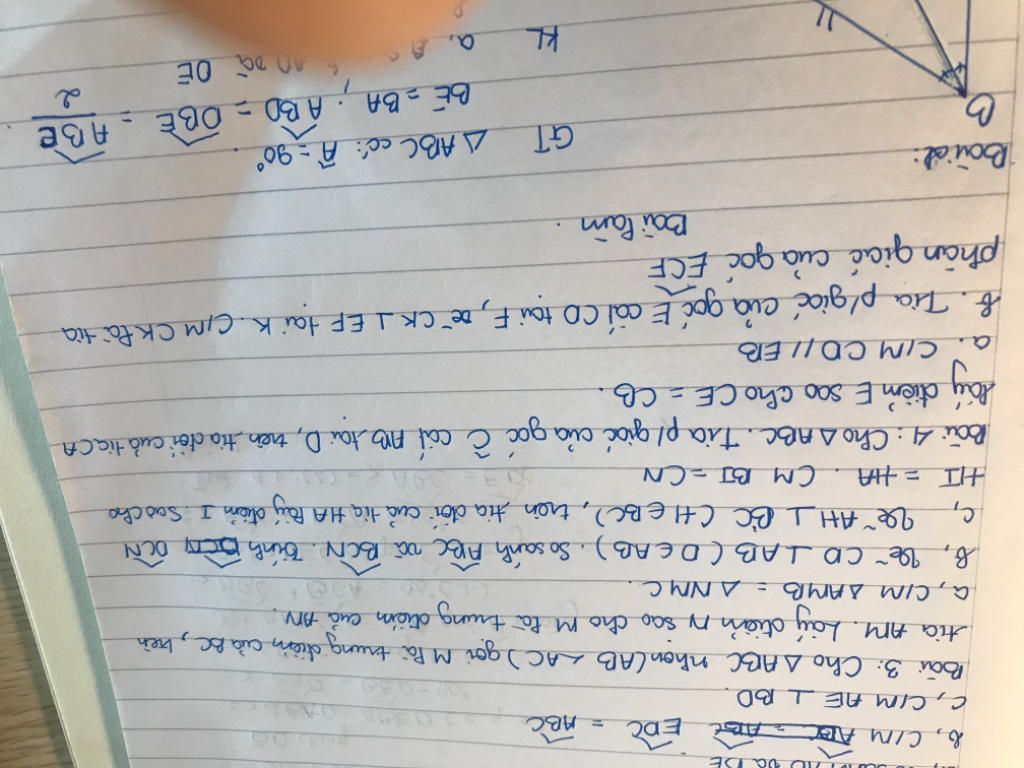 và DE
b, C/M EDC = ABC
c, C/M AE ⊥ BD
Bài 3: Cho △ABC nhọn (AB < AC) gọi M là trung điểm của BC, trên
tia AM. Lấy điểm N sao cho M là trung điểm của AN
a, C/M △AMB = △NMC.
b, Kẻ CD ⊥ AB (D ∈ AB). So sánh ABC và BCN. Tính DCN
c, Kẻ AH ⊥ BC (H ∈ BC), trên tia đối của tia HA lấy điểm I sao cho
HI = HA. CM BI = CN
Bài 4: Cho △ABC. Tia p/giác của góc C cắt AB tại D, trên tia đối của tia CA
lấy điểm E sao cho CE = CB.
a. C/M CD // EB
b. Tia p/giác của góc E cắt CD tại F, vẽ CK ⊥ EF tại K. C/M CK là tia
phân giác của góc ECF
Bài làm.
Bài 2:
GT △ABC có: A = 90°
B BE = BA; ABD = DBE = ABE/2
KL a, AD và DE